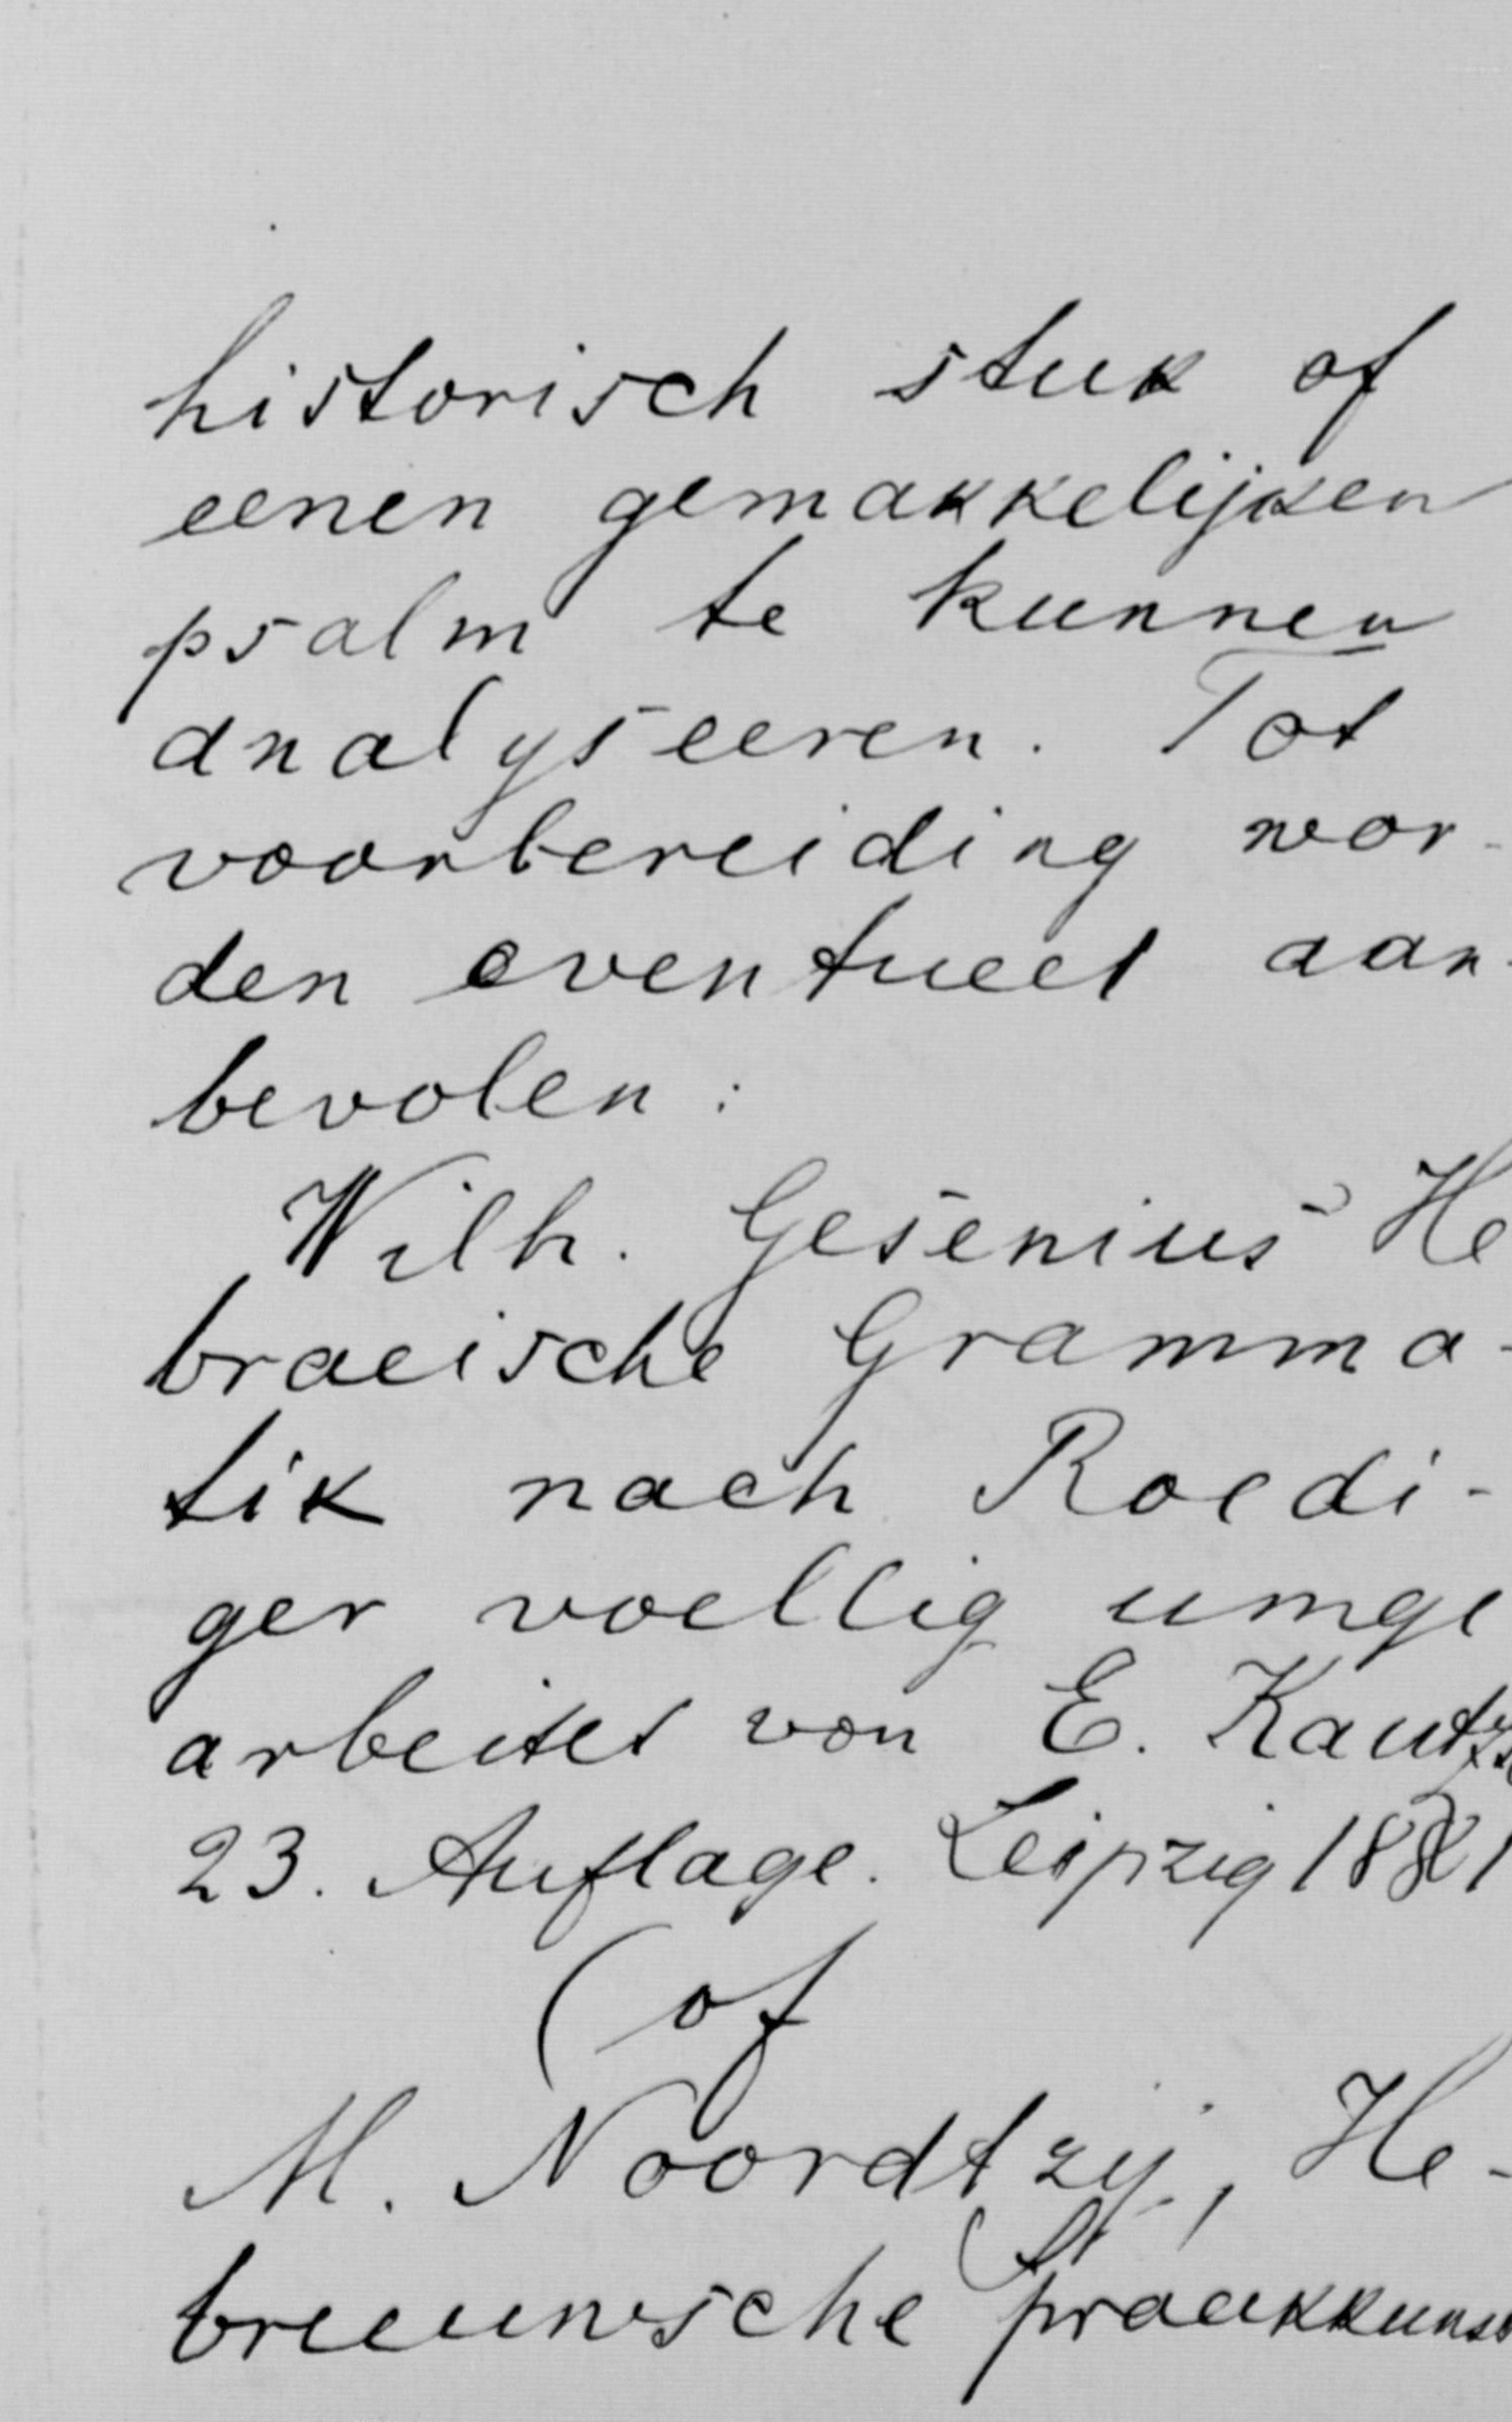 historisch stuk of
eenen gemakkelijken
psalm te kunnen
analyseeren. Tot
voorbereiding wor-
den eventueel aan-
bevolen:
Wilh. Gesenius' He
braeische Gramma-
tik nach Roedi-
ger voellig umge
arbeitet von E. Kautzs
23. Auflage. Leipzig 1881
(of
M. Noordtzy, He-
breeuwsche Spraakkunst